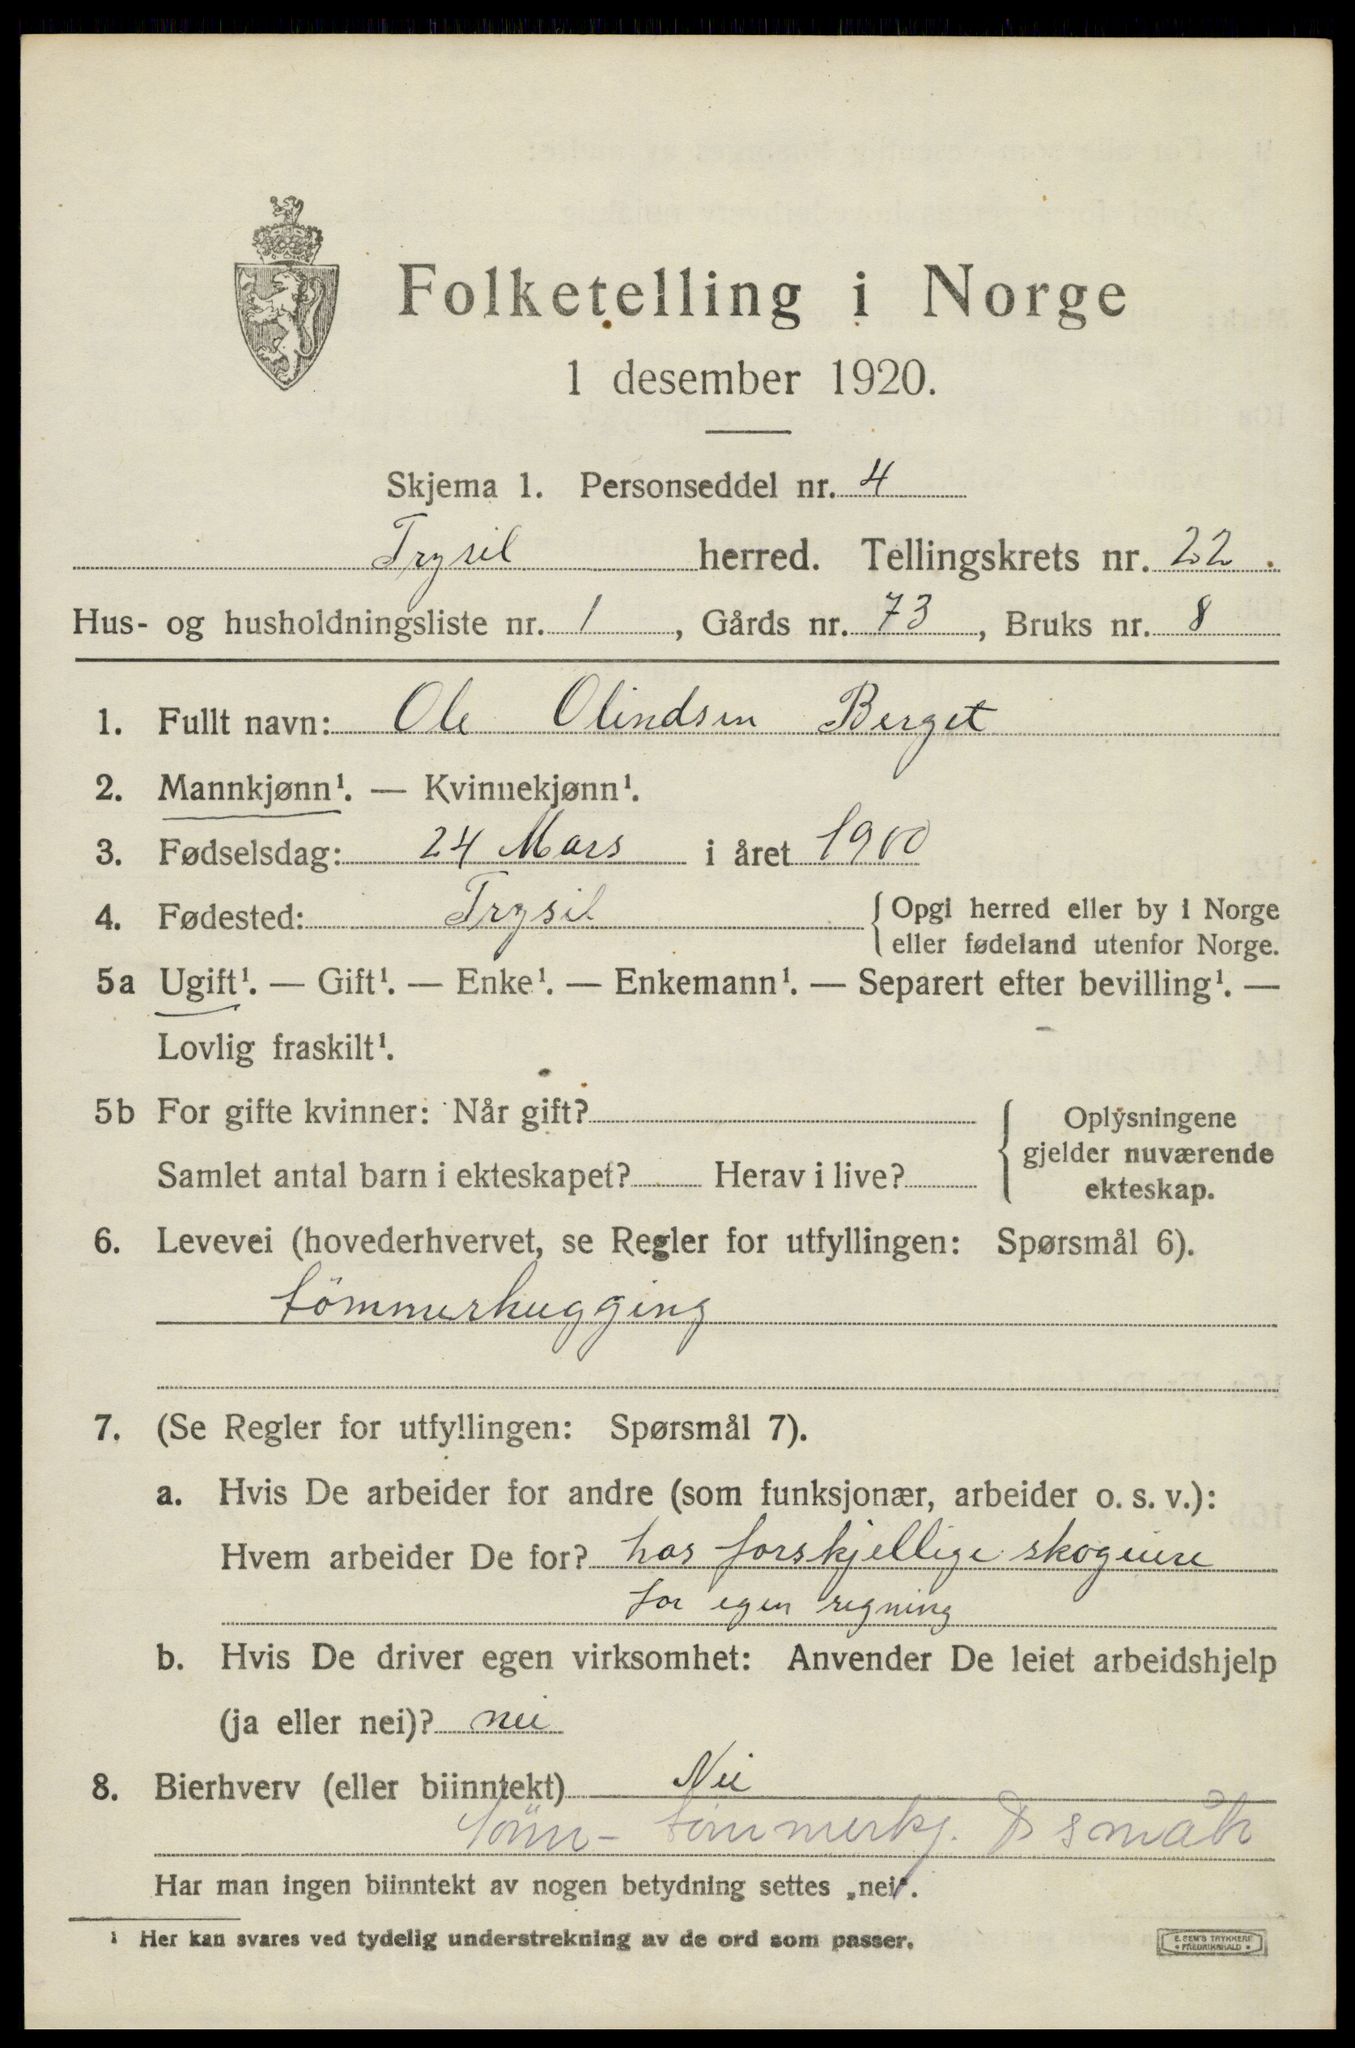 Folketelling i Norge
1 desember 1920.
Skjema 1. Personseddel nr. 4
Trysil herred. Tellingskrets nr. 22.
Hus- og husholdningsliste nr. 1, Gårds nr. 73, Bruks nr. 8
1. Fullt navn: Ole Olindsen Berget
2. Mannkjønn¹. — Kvinnekjønn¹.
3. Fødselsdag: 24 Mars i året 1900
4. Fødested: Trysil {Opgi herred eller by i Norge
eller fødeland utenfor Norge.
5a Ugift¹. — Gift¹. — Enke¹. — Enkemann¹. — Separert efter bevilling¹. —
Lovlig fraskilt¹.
5b For gifte kvinner: Når gift?
Samlet antal barn i ekteskapet? Herav i live?
Oplysningene
gjelder nuværende
ekteskap.
6. Levevei (hovederhvervet, se Regler for utfyllingen: Spørsmål 6).
tömmerhugging
7. (Se Regler for utfyllingen: Spørsmål 7).
a. Hvis De arbeider for andre (som funksjonær, arbeider o. s. v.):
Hvem arbeider De for? hos forskjellige skogeiere
for egen regning
b. Hvis De driver egen virksomhet: Anvender De leiet arbeidshjelp
(ja eller nei)? nei
8. Bierhverv (eller biinntekt) Nei
tömmerkj.
Har man ingen biinntekt av nogen betydning settes „nei".
¹ Her kan svares ved tydelig understrekning av de ord som passer.
E. SEM'S TRYKKERI
FREDRIKSHALD